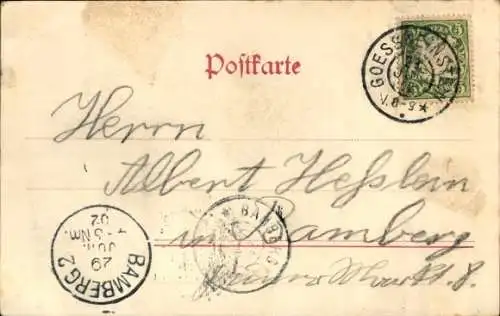 Postkarte
5
GOESSWEINSTEIN
V. 8-9 *
Herrn
Albert Hesslein
in Bamberg
Markt. 8.
BAMBERG 2
29 JUL 02
4-5 Nm.
BAMBERG